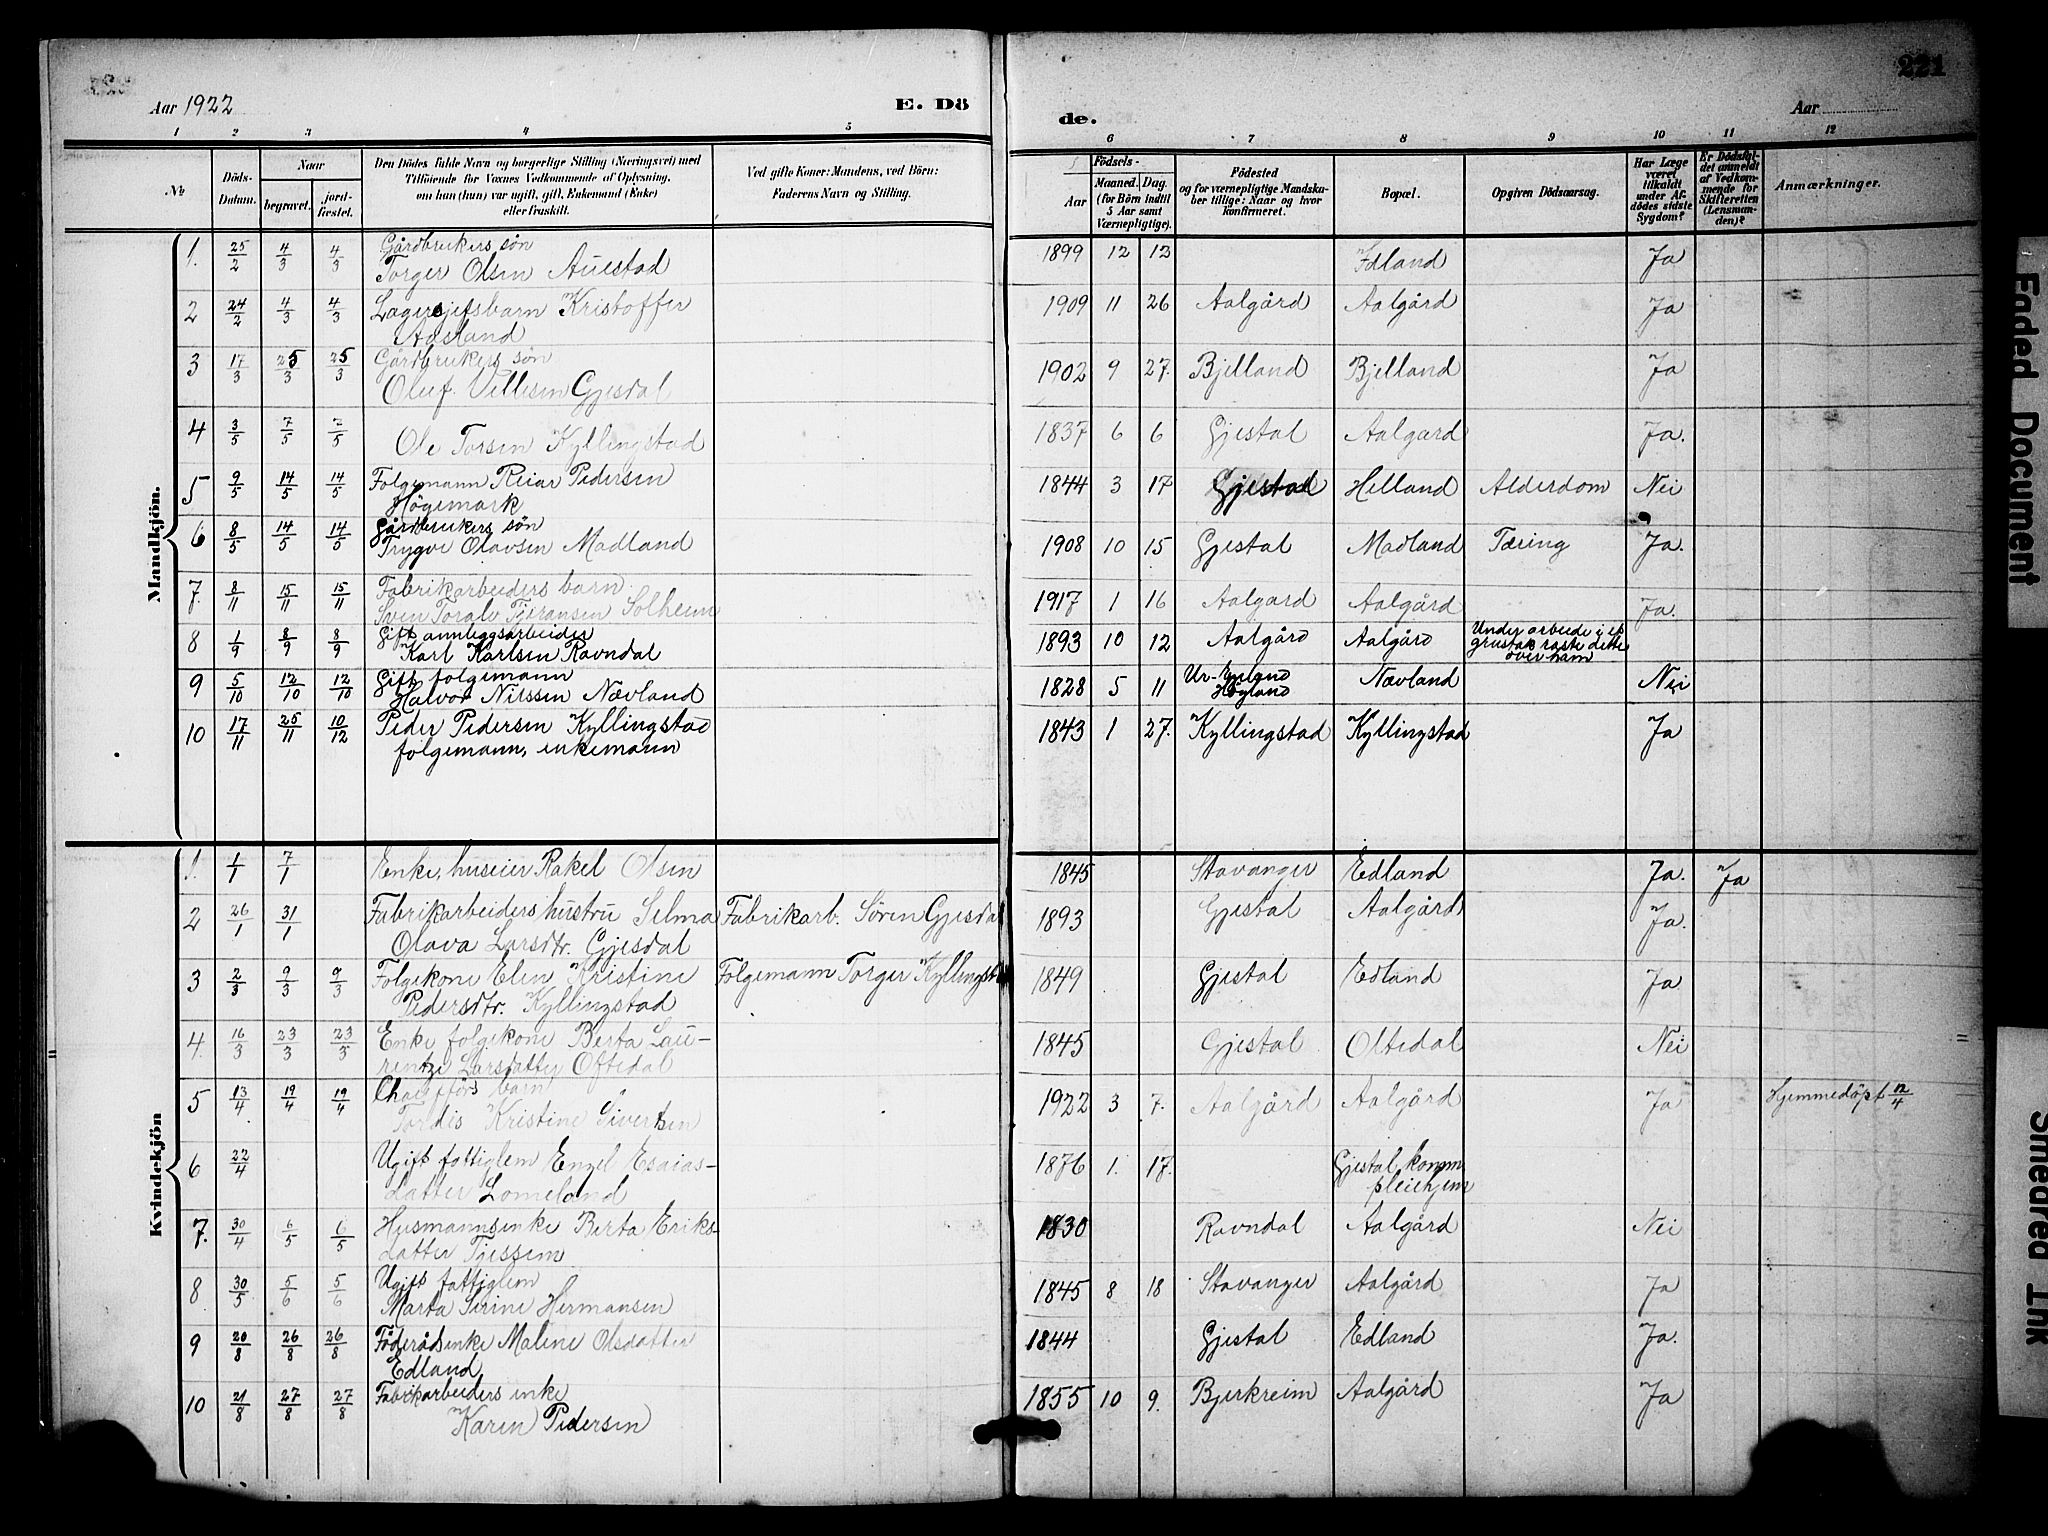 Aar 1922
E. Dö
1 2 3 4 5
No.
Döds-Datum.
Naar
begravet.
jordfæstet.
Den Dödes fulde Navn og borgerlige Stilling (Næringsvei) med
Tilföiende for Voxnes Vedkommende af Oplysning,
om han (hun) var ugift, gift, Enkemand (Enke)
eller fraskilt.
Ved gifte Koner: Mandens, ved Börn:
Faderens Navn og Stilling.
Mandkjön.
1. 25/2 4/3 4/3 Gårdbrukers søn
Torger Olsen Auestad
2 24/2 4/3 4/3 Lagersjefsbarn Kristoffer
Aasland
3 17/3 25/3 25/3 Gårdbrukers søn
Oluf Villesen Gjesdal
4 3/5 7/5 7/5 Ole Torsen Kyllingstad
5 9/5 14/5 14/5 Folgemann Reiar Pedersen
Høgemark
6 8/5 14/5 14/5 Gårdbrukers søn
Trygve Olavsen Madland
7. 8/11 15/11 15/11 Fabrikarbeiders barn
Sven Toralv Tjeransen Solheim
8 1/9 8/9 8/9 Gift anneggsarbeider
Karl Karlsen Ravndal
9 5/10 12/10 12/10 Gift folgemann
Halvor Nilssen Nævland
10 17/11 25/11 10/12 Peder Pedersen Kyllingstad
folgemann, enkemann
Kvindekjön
1. 1/1 7/1 Enke, huseier Rakel Olsen
2 26/1 31/1 Fabrikarbeiders hustru Selma Fabrikarb. Søren Gjesdal
Olava Larsdtr. Gjesdal
3 2/3 9/3 9/3 Folgekone Elen Kristine Folgemann Torger Kyllingstad
Pedersdtr. Kyllingstad
4. 16/3 23/3 23/3 Enke folgekone Berta Lau-
rentze Larsdatter Oftedal
5 13/4 19/4 19/4 Chaufførs barn
Tordis Kristine Sivertsen
6 22/4 Ugift fattiglem Engel Esaias-
datter Lomeland
7. 30/4 6/5 6/5 Husmannsenke Berta Eriks-
datter Tjessem
8 30/5 5/6 5/6 Ugift fattiglem
Marta Serine Hermansen
9 20/8 26/8 26/8 Føderådsenke Malene Olsdatter
Edland
10 21/8 27/8 27/8 Fabrikarbeiders enke
Karen Pedersen
221
de.
Aar
6 7 8 9 10 11 12
Födsels-
Aar
Maaned. Dag.
(for Börn indtil
5 Aar samt
Værnepligtige).
Födested
og for værnepligtige Mandska-
ber tillige: Naar og hvor
konfirmeret.
Bopæl.
Opgiven Dödsaarsag.
Har Læge
været
tilkaldt
under Af-
dödes sidste
Sygdom?
Er Dödsfal-
det anmeldt
af Vedkom-
mende for
Skifteretten
(Lensman-
den)?
Anmærkninger.
1899 12 13 Edland Ja
1909 11 26 Aalgård Aalgård Ja
1902 9 27. Bjelland Bjelland Ja
1837 6 6 Gjestal Aalgard Ja.
1844 3 17 Gjestal Helland Alderdom Nei
1908 10 15 Gjestal Madland Tæring Ja.
1917 1 16 Aalgard Aalgård Ja.
1893 10 12 Aalgård Aalgård Under arbeide i et
grustak raste dette
over ham
1828 5 11 Høyland Nævland Nei
1843 1 27. Kyllingstad Kyllingstad Ja
1845 Stavanger Edland Ja. Ja
1893 Gjestal Aalgård Ja.
1849 Gjestal Edland Ja
1845 Gjestal Oltedal Nei
1922 3 7. Aalgård Aalgård Ja Hjemmedöpt 12/4
1876 1. 17. Gjestal komm
pleiehjem
1830 Ravndal Aalgård Nei
1845 8 18 Stavanger Aalgård Ja
1844 Gjestal Edland Ja.
1855 10 9. Bjerkreim Aalgård Ja
Faded Document
Smeared Ink